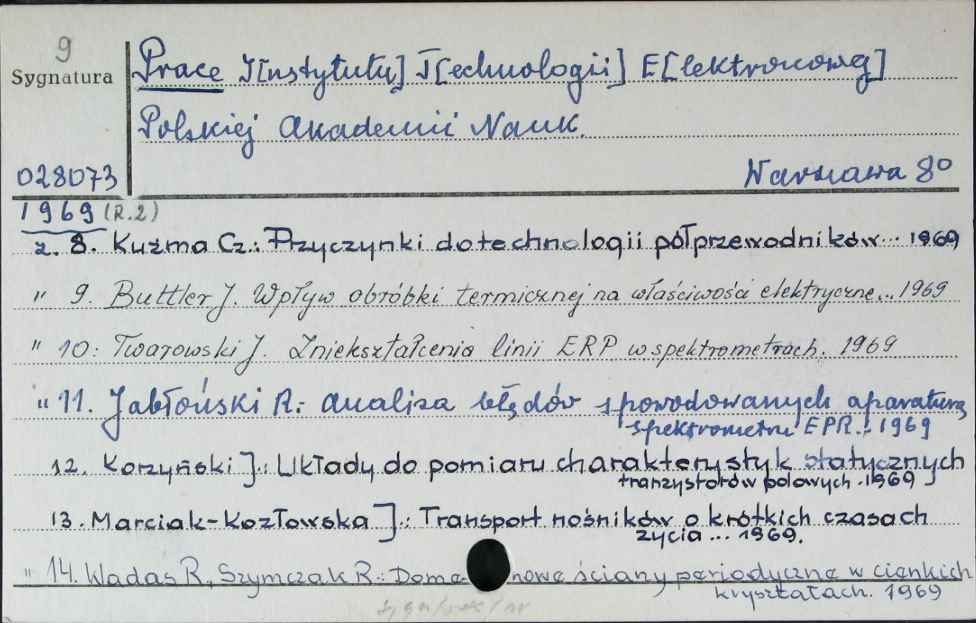 9
Sygnatura
Prace I[nstytutu] T[echnologii] E[lektronowej]
Polskiej Akademii Nauk.
028073
Warszawa 8°
1969 (R.2)
z. 8. Kuźma Cz.: Przyczynki do technologii półprzewodników... 1969
" 9. Buttler J. Wpływ obróbki termicznej na właściwości elektryczne... 1969
" 10: Twarowski J. Zniekształcenia linii ERP w spektrometrach. 1969
" 11. Jabłoński R.: Analiza błędów spowodowanych aparaturą
spektrometru EPR.. 1969
12. Korzyński J.: Układy do pomiaru charakterystyk statycznych
tranzystorów polowych. 1969
13. Marciak-Kozłowska J.: Transport nośników o krótkich czasach
życia ... 1969.
" 14. Wadas R., Szymczak R.: Domenowe ściany periodyczne w cienkich
kryształach. 1969